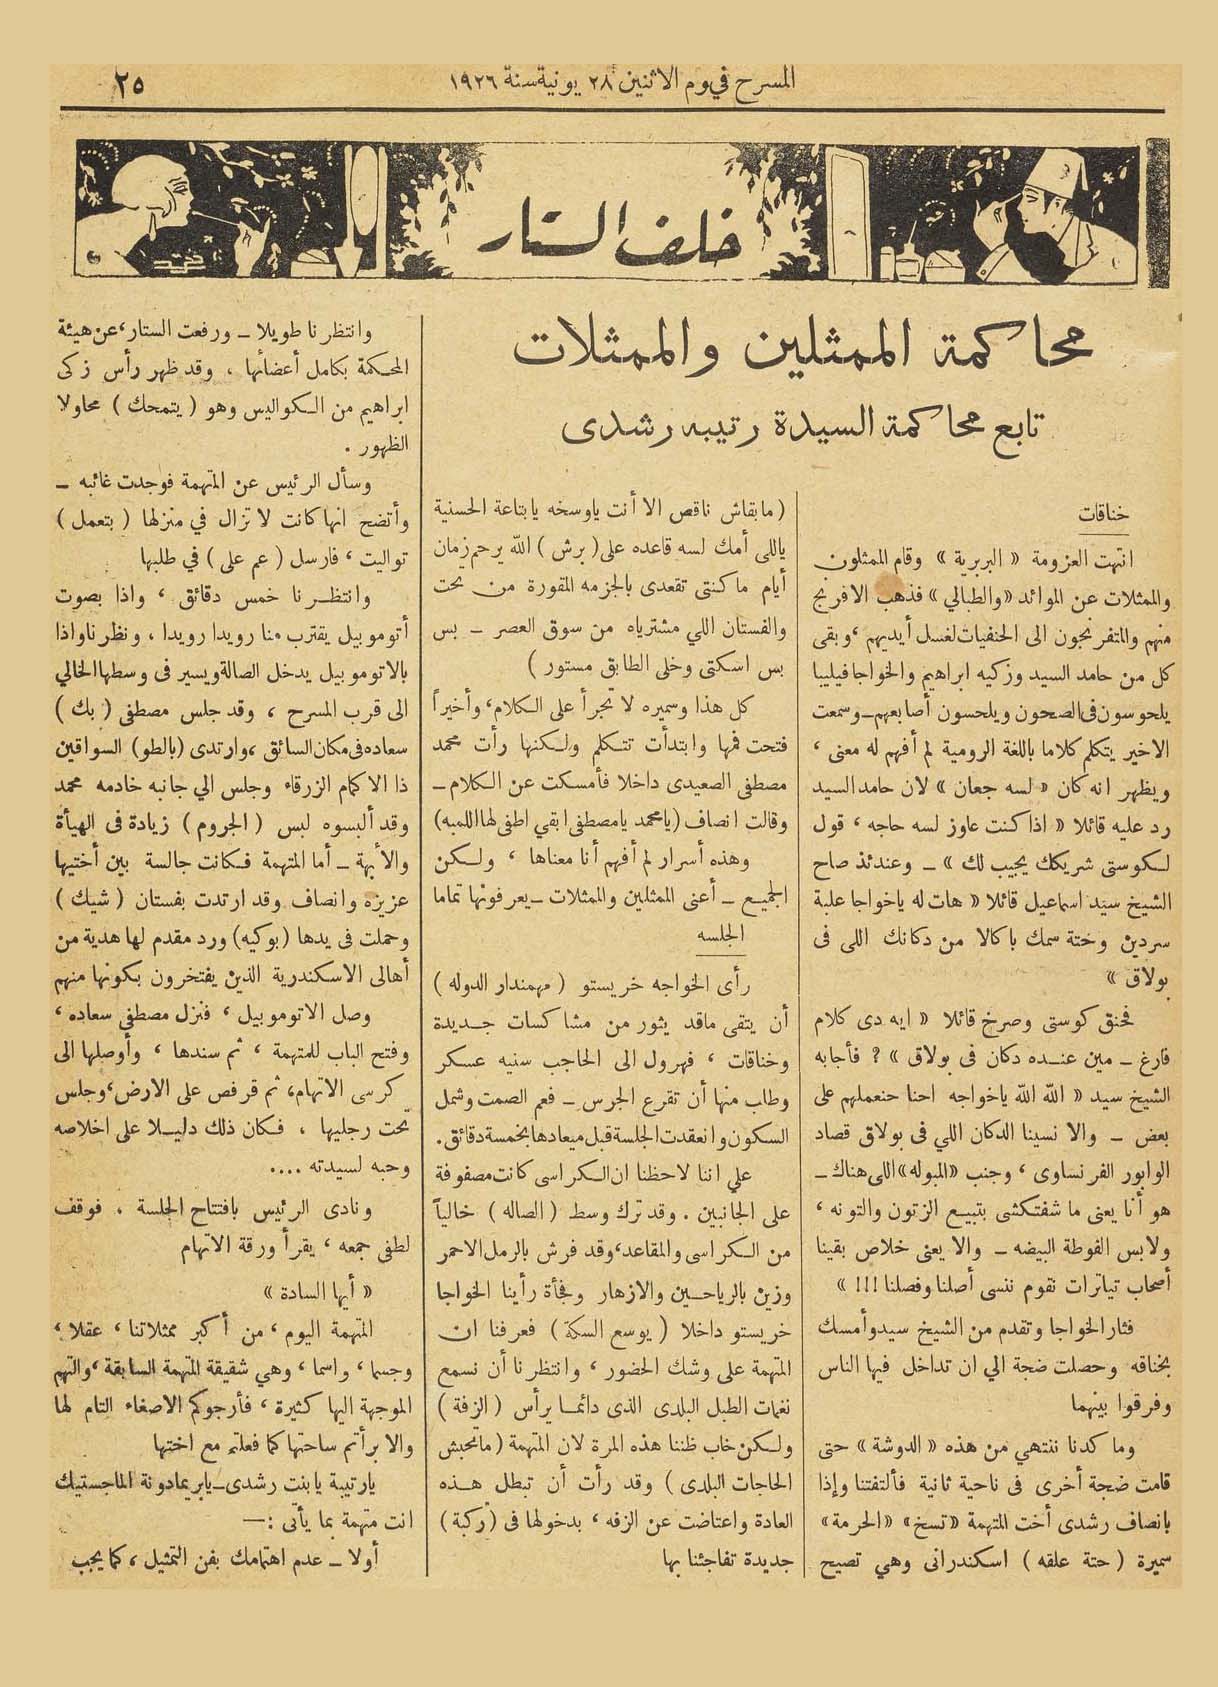 المسرح في يوم الاثنين ٢٨ يونية سنة ١٩٢٦
٢٥
خلف الستار
محاكمة الممثلين والممثلات
تابع محاكمة السيدة رتيبه رشدى
خناقات
انتهت العزومة « البربرية » وقام الممثلون
والممثلات عن الموائد «والطبالي» فذهب الافرنج
منهم والمتفرنجون الى الحنفيات لغسل أيديهم ، وبقى
كل من حامد السيد وزكيه ابراهيم والخواجا فيليبا
يلحوسون فى الصحون ويلحسون أصابعهم ــ وسمعت
الاخير يتكلم كلاما باللغة الرومية لم أفهم له معنى ،
ويظهر انه كان « لسه جعان » لان حامد السيد
رد عليه قائلا « اذا كنت عاوز لسه حاجه ، قول
لكوستى شريكك يجيب لك » ــ وعندئذ صاح
الشيخ سيد اسماعيل قائلا « هات له ياخواجا علبة
سردين وختة سمك باكالا من دكانك اللى فى
بولاق »
فحنق كوستى وصرخ قائلا « ايه دى كلام
فارغ ــ مين عنده دكان فى بولاق » ? فأجابه
الشيخ سيد « الله الله ياخواجه احنا حنعملهم على
بعض ــ والا نسينا الدكان اللي فى بولاق قصاد
الوابور الفرنساوى ، وجنب «المبوله» اللى هناك ــ
هو أنا يعنى ما شفتكشى بتبيع الزتون والتونه ،
ولابس الفوطة البيضه ــ والا يعنى خلاص بقينا
أصحاب تياترات نقوم ننسى أصلنا وفصلنا !!! »
فثار الخواجا وتقدم من الشيخ سيد وأمسك
بخناقه وحصلت ضجة الي ان تداخل فيها الناس
وفرقوا بينهما
وما كدنا ننتهي من هذه « الدوشة » حتى
قامت ضجة أخرى فى ناحية ثانية فألتفتنا وإذا
بانصاف رشدى أخت المتهمة «تسخ» «الحرمة»
سميرة ( حتة علقه ) اسكندرانى وهي تصيح
( مابقاش ناقص الا أنت ياوسخه يابتاعة الحسنية
ياللى أمك لسه قاعده على ( برش ) الله يرحم زمان
أيام ماكنتى تقعدى بالجزمه المقورة من تحت
والفستان اللي مشترياه من سوق العصر ــ بس
بس اسكتى وخلى الطابق مستور )
كل هذا وسميره لا تجرأ على الكلام ، وأخيراً
فتحت فمها وابتدأت تتكلم ولكنها رأت محمد
مصطفى الصعيدى داخلا فأمسكت عن الكلام ــ
وقالت انصاف (يامحمد يامصطفى ابقي اطفى لها اللمبه)
وهذه أسرار لم أفهم أنا معناها ، ولكن
الجميع ــ أعنى الممثلين والممثلات ــ يعرفونها تماما
الجلسه
رأى الخواجه خريستو ( مهمندار الدوله )
أن يتقى ماقد يثور من مشاكسات جديدة
وخناقات ، فهرول الى الحاجب سنيه عسكر
وطاب منها أن تقرع الجرس ــ فعم الصمت وشمل
السكون وانعقدت الجلسة قبل ميعادها بخمسة دقائق .
علي اننا لاحظنا ان الكراسى كانت مصفوفة
على الجانبين . وقد ترك وسط ( الصاله ) خالياً
من الكراسى والمقاعد ، وقد فرش بالرمل الاحمر
وزين بالرياحين والازهار وفجأة رأينا الخواجا
خريستو داخلا ( يوسع السكة ) فعرفنا ان
المتهمة على وشك الحضور ، وانتظرنا أن نسمع
نغمات الطبل البلدى الذى دائما يرأس ( الزفة )
ولكن خاب ظننا هذه المرة لان المتهمة ( ماتحبش
الحاجات البلدى ) وقد رأت أن تبطل هذه
العادة واعتاضت عن الزفه ، بدخولها فى ( ركبة )
جديدة تفاجئنا بها
وانتظرنا طويلا ــ ورفعت الستار ، عن هيئة
المحكمة بكامل أعضائها ، وقد ظهر رأس زكى
ابراهيم من الكواليس وهو ( يتمحك ) محاولا
الظهور .
وسأل الرئيس عن المتهمة فوجدت غائبه ــ
وأتضح انها كانت لا تزال في منزلها ( بتعمل )
تواليت ، فارسل ( عم على ) في طلبها
وانتظرنا خمس دقائق ، واذا بصوت
أتوموبيل يقترب منا رويدا رويدا ، ونظرنا واذا
بالاتوموبيل يدخل الصالة ويسير فى وسطها الخالي
الى قرب المسرح ، وقد جلس مصطفى ( بك )
سعاده فى مكان السائق ، وارتدى (بالطو) السواقين
ذا الاكمام الزرقاء وجلس الي جانبه خادمه محمد
وقد ألبسوه لبس ( الجروم ) زيادة فى الهيأة
والأبهة ــ أما المتهمة فكانت جالسة بين أختيها
عزيزه وانصاف وقد ارتدت بفستان ( شيك )
وحملت فى يدها (بوكيه) ورد مقدم لها هدية من
أهالى الاسكندرية الذين يفتخرون بكونها منهم
وصل الاتوموبيل ، فنزل مصطفى سعاده ،
وفتح الباب للمتهمة ، ثم سندها ، وأوصلها الى
كرسى الاتهام ، ثم قرفص على الارض ، وجلس
تحت رجليها ، فكان ذلك دليلا على اخلاصه
وحبه لسيدته ....
ونادى الرئيس بافتتاح الجلسة ، فوقف
لطفى جمعه ، يقرأ ورقة الاتهام
« أيها السادة »
المتهمة اليوم ، من أكبر ممثلاتنا ، عقلا ،
وجسما ، واسما ، وهي شقيقة المتهمة السابقة ، والتهم
الموجهة اليها كثيرة ، فأرجوكم الاصغاء التام لها
والا برأتم ساحتها كما فعلتم مع اختها
يارتيبة يابنت رشدى ــ يابريمادونة الماجستيك
انت متهمة بما يأتى :ــ
أولا ــ عدم اهتمامك بفن التمثيل ، كما يجب